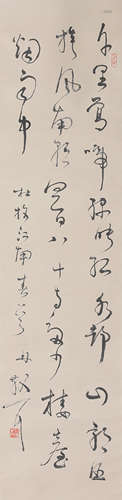 千里鶯啼綠映紅水村山郭酒
旗風南朝四百八十寺多少樓臺
煙雨中
杜牧江南春 林散耳